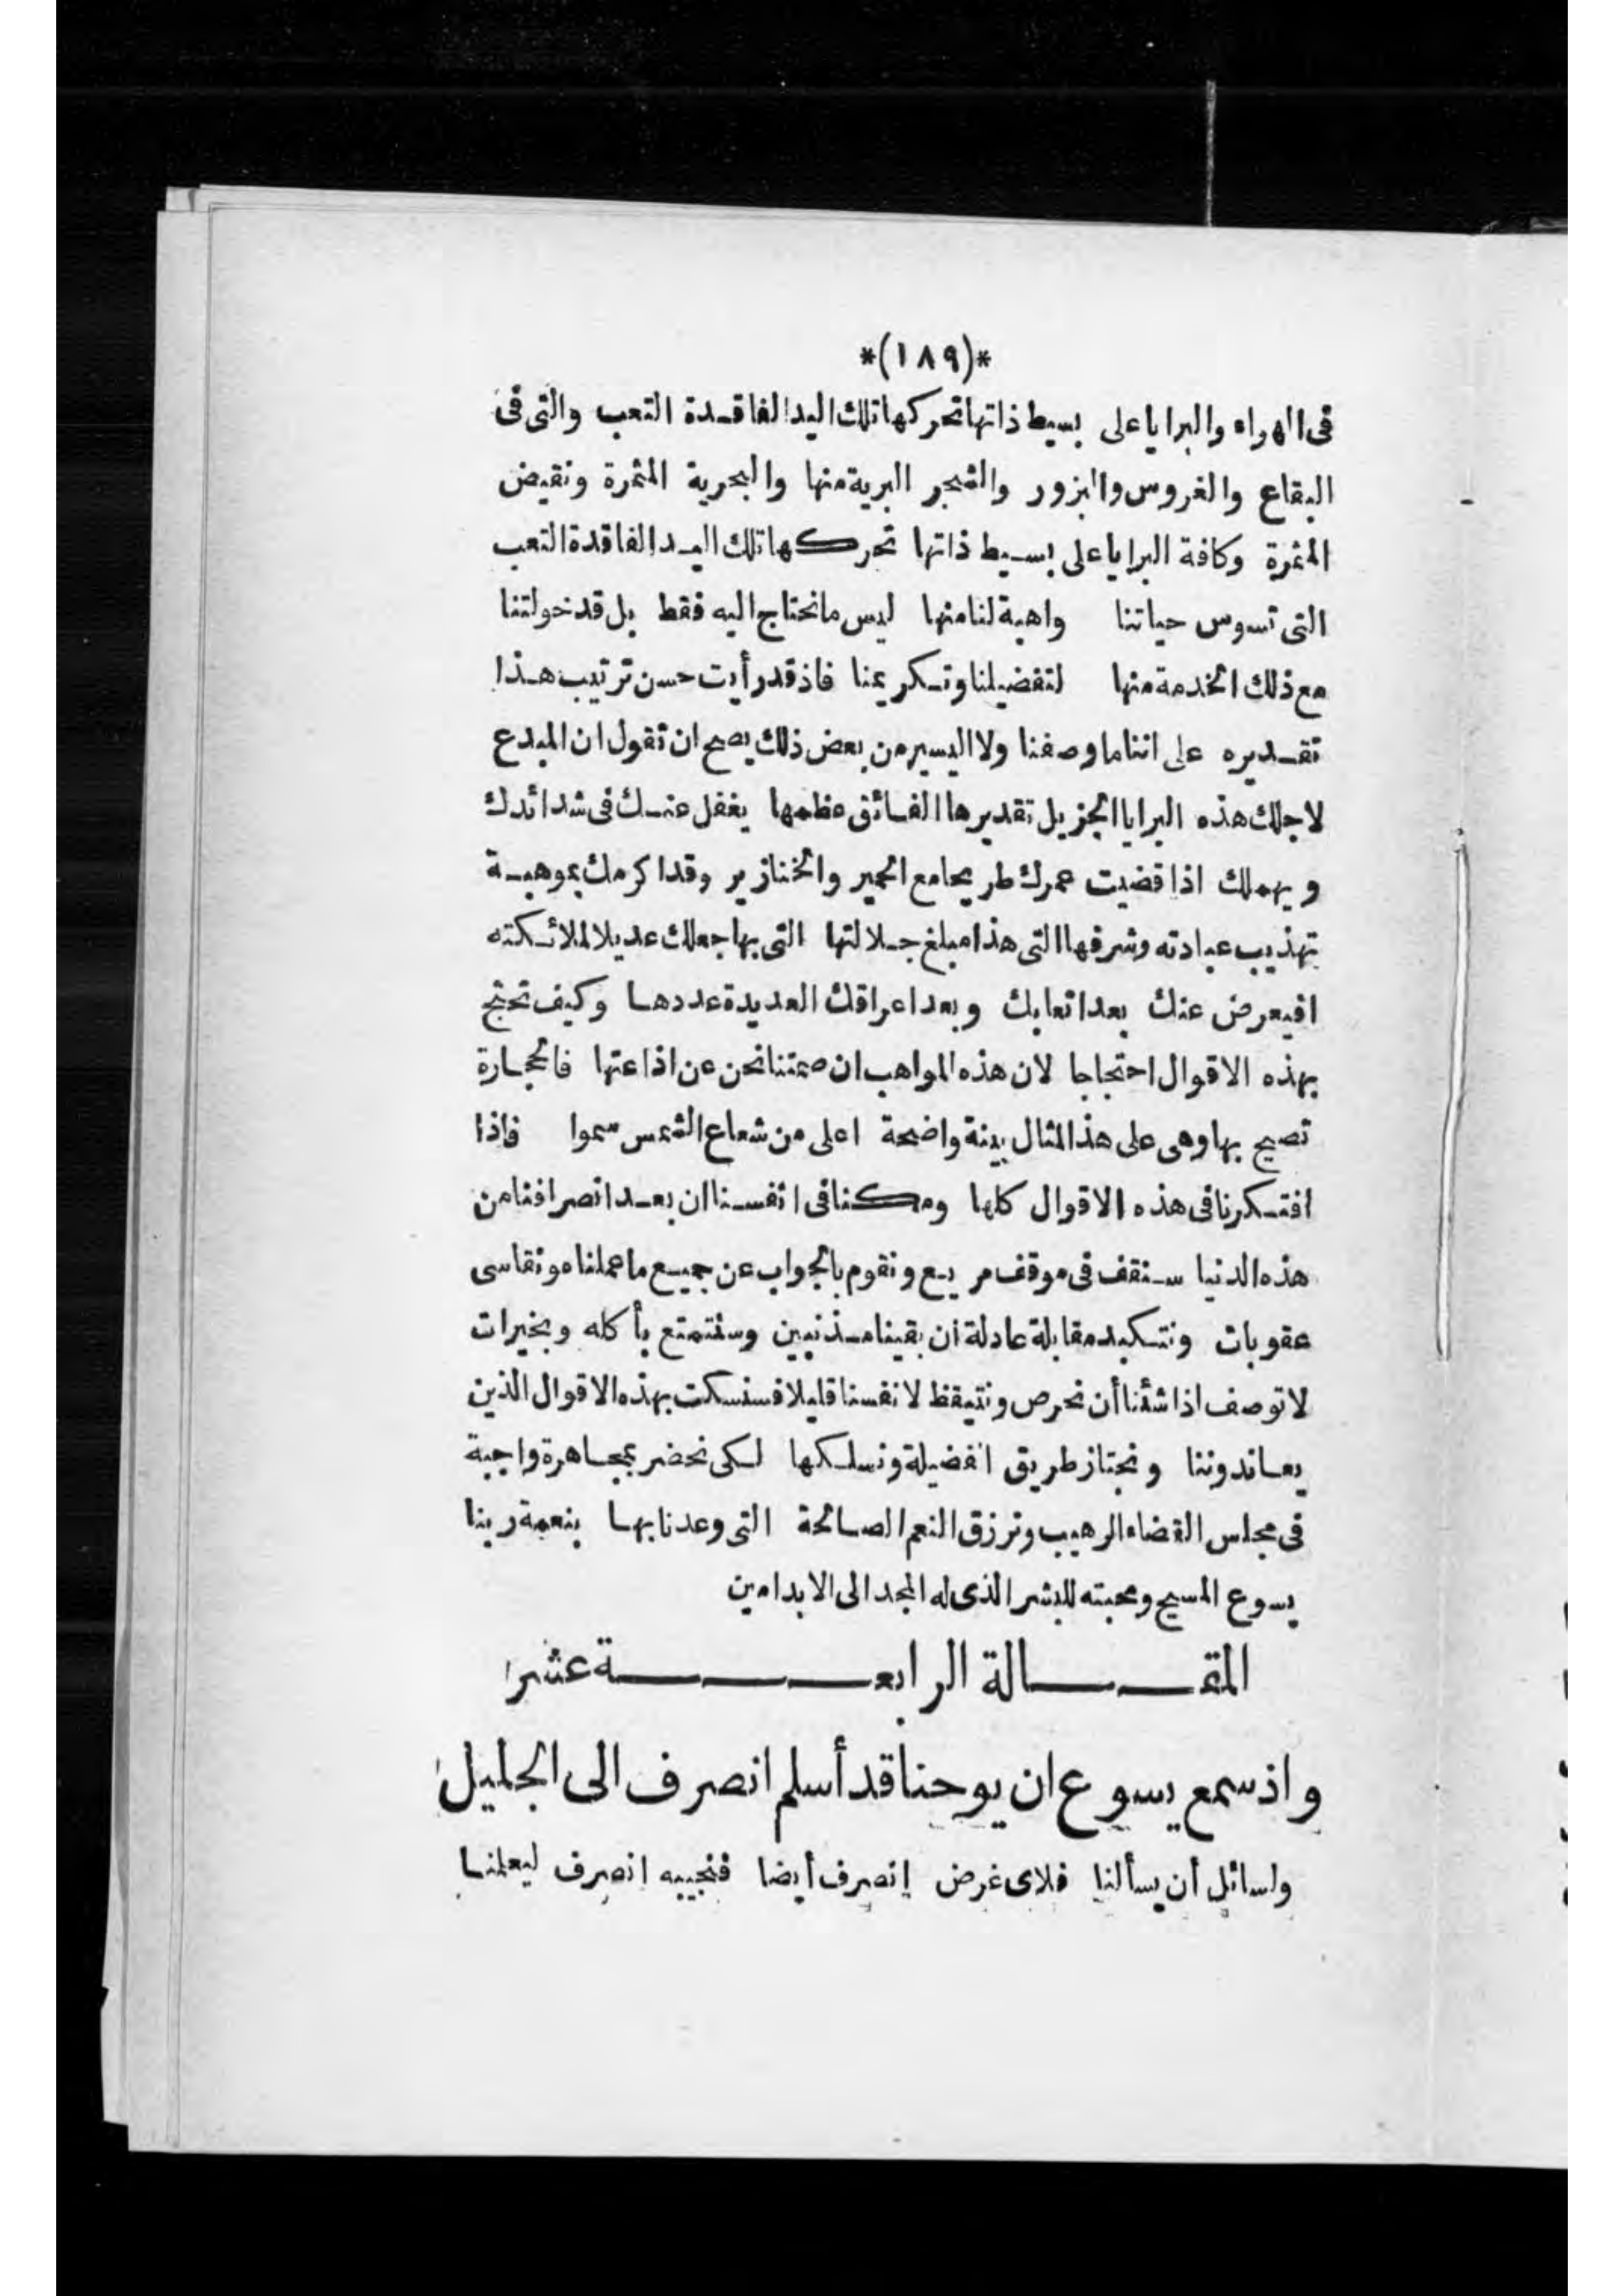 *(١٨٩)*
فى الهواء والبرايا على بسيط ذاتها تحركها تلك اليد الفاقدة التعب والتى فى
البقاع والغروس والبزور والشجر البرية منها والبحرية المثمرة ونقيض
المثمرة وكافة البرايا على بسيط ذاتها تحركها تلك اليد الفاقدة التعب
التى تسوس حياتنا واهبة لنا منها ليس ما نحتاج اليه فقط بل قد خولتنا
مع ذلك الخدمة منها لتفضيلنا وتكريمنا فاذ قد رأيت حسن ترتيب هذا
تقديره على اننا ما وصفنا ولا اليسير من بعض ذلك يصح ان تقول ان المبدع
لاجلك هذه البرايا الجزيل تقديرها الفائق عظمها يغفل عنك فى شدائدك
ويهملك اذا قضيت عمرك طريحا مع الحمير والخنازير وقد اكرمك بموهبة
تهذيب عبادته وشرفها التى هذا مبلغ جلالتها التى بها جعلك عديلا لملائكته
افيعرض عنك بعد اتعابك وبعد اعراقك العديدة عددها وكيف تحتج
بهذه الاقوال احتجاجا لان هذه المواهب ان صمتنا نحن عن اذاعتها فالحجارة
تصيح بها وهى على هذا المثال بينة واضحة اعلى من شعاع الشمس سموا فاذا
افتكرنا فى هذه الاقوال كلها ومكنا فى انفسنا ان بعد انصرافنا من
هذه الدنيا سنقف فى موقف مريع ونقوم بالجواب عن جميع ما عملناه ونقاسى
عقوبات ونتكبد مقابلة عادلة ان بقينا مذنبين وسنتمتع بأكله وبخيرات
لا توصف اذا شئنا أن نحرص ونتيقظ لانفسنا قليلا فسنسكت بهذه الاقوال الذين
يعاندوننا ونجتاز طريق الفضيلة ونسلكها لكى نحضر بمجاهرة واجبة
فى مجلس القضاء الرهيب ونرزق النعم الصالحة التى وعدنا بها بنعمة ربنا
يسوع المسيح ومحبته للبشر الذى له المجد الى الابد امين
المقالة الرابعة عشر
واذ سمع يسوع ان يوحنا قد أسلم انصرف الى الجليل
ولسائل أن يسألنا فلاى غرض انصرف أيضا فنجيبه انصرف ليعلمنا